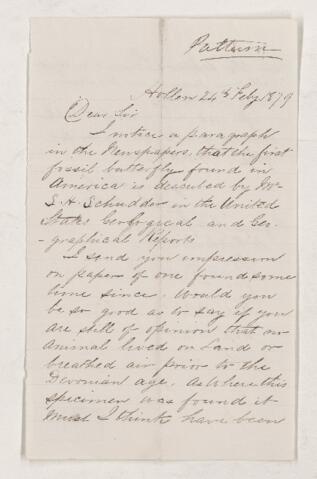 Hollen 24th Feby 1879
Dear Sir
I notice a paragraph
in the Newspapers, that the first
fossil butterfly found in
America is described by Mr
S. H. Schudder in the United
States Geological and Geo-
-graphical Reports
I send you impression
on paper of one found some
time since. Would you
be so good as to say if you
are still of opinion that no
Animal lived on Land or
breathed air prior to the
Devonian age. As where this
specimen was found it
must I think have been